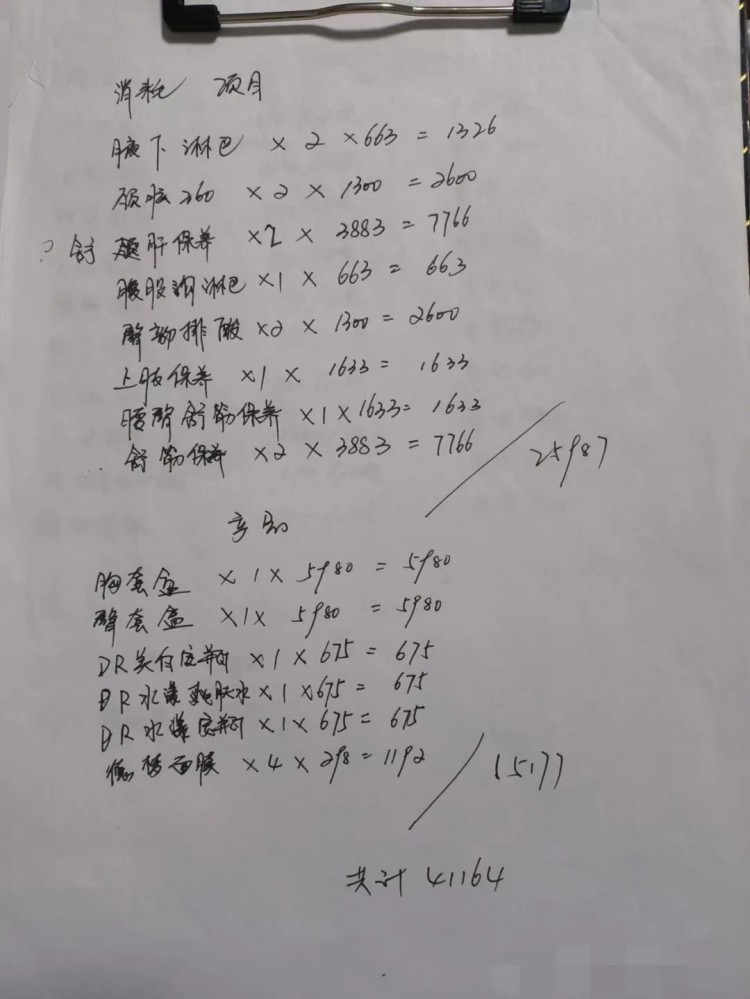 消耗 项目
腋下淋巴 × 2 × 663 = 1326
260 × 2 × 1300 = 2600
? 舒 肝保养 × 2 × 3883 = 7766
腹股沟淋巴 × 1 × 663 = 663
臀部排酸 × 2 × 1300 = 2600
上肢保养 × 1 × 1633 = 1633
腰臀舒筋保养 × 1 × 1633 = 1633
舒筋保养 × 2 × 3883 = 7766
25987
胸套盒 × 1 × 5980 = 5980
臀套盒 × 1 × 5980 = 5980
DR美白 × 1 × 675 = 675
DR水漾 肤水 × 1 × 675 = 675
DR水漾 × 1 × 675 = 675
面膜 × 4 × 298 = 1192
15177
共计 41164